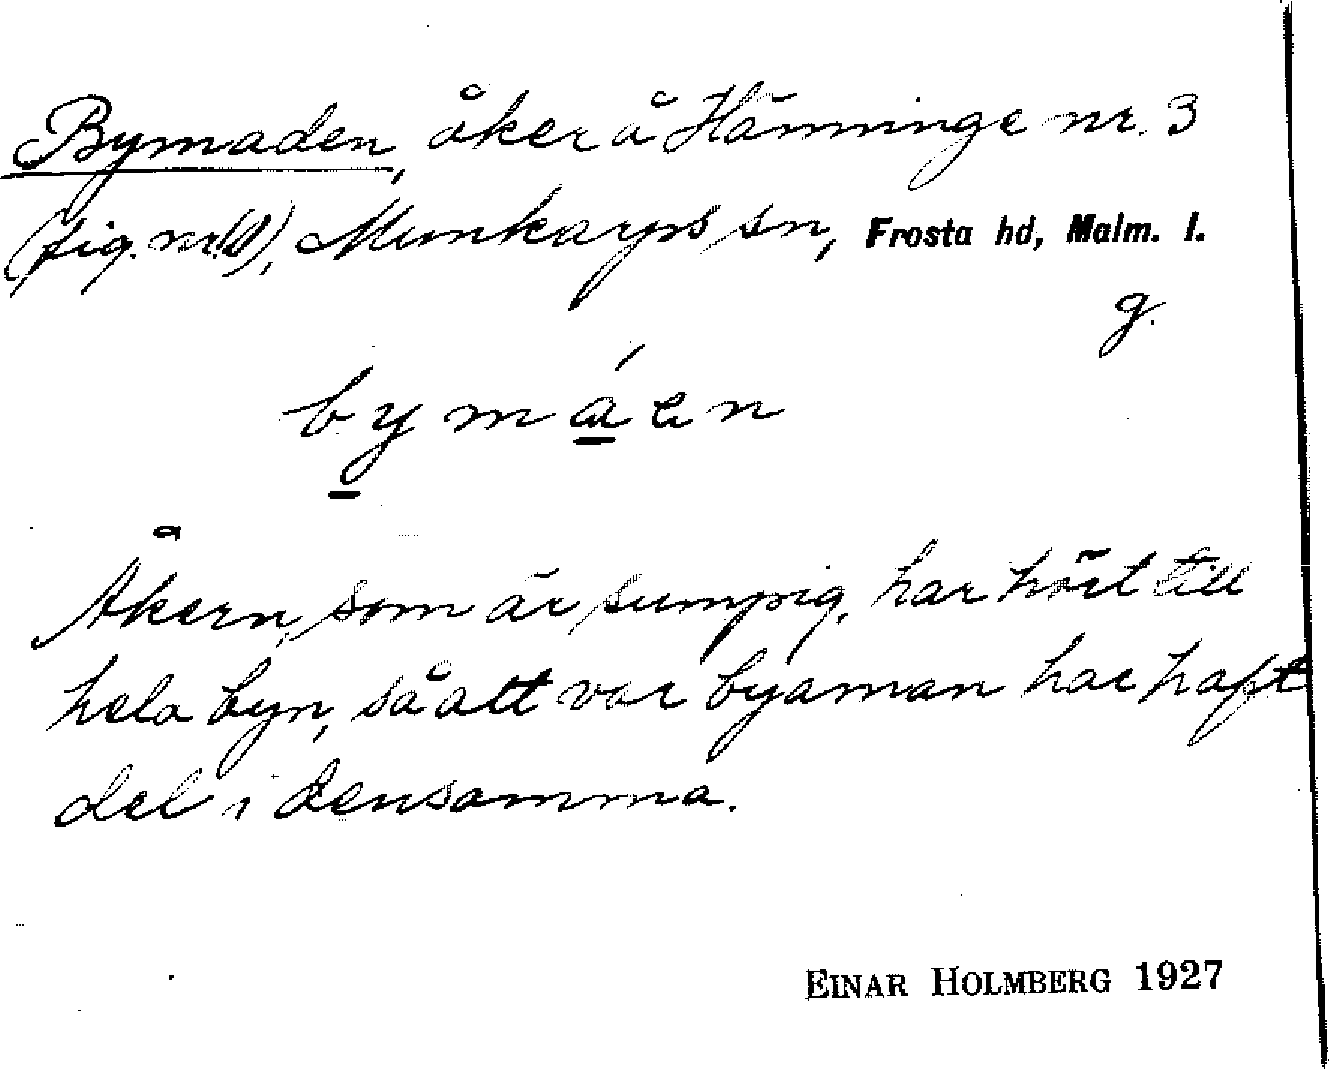 Bymaden, åker å Hänninge nr. 3
(fig. nr. ), Munkarps sn, Frosta hd, Malm. l.
g.
bymáen
Åkern, som är sumpig, har hört till
hela byn, så att var byaman har haft
del i densamma.
EINAR HOLMBERG 1927